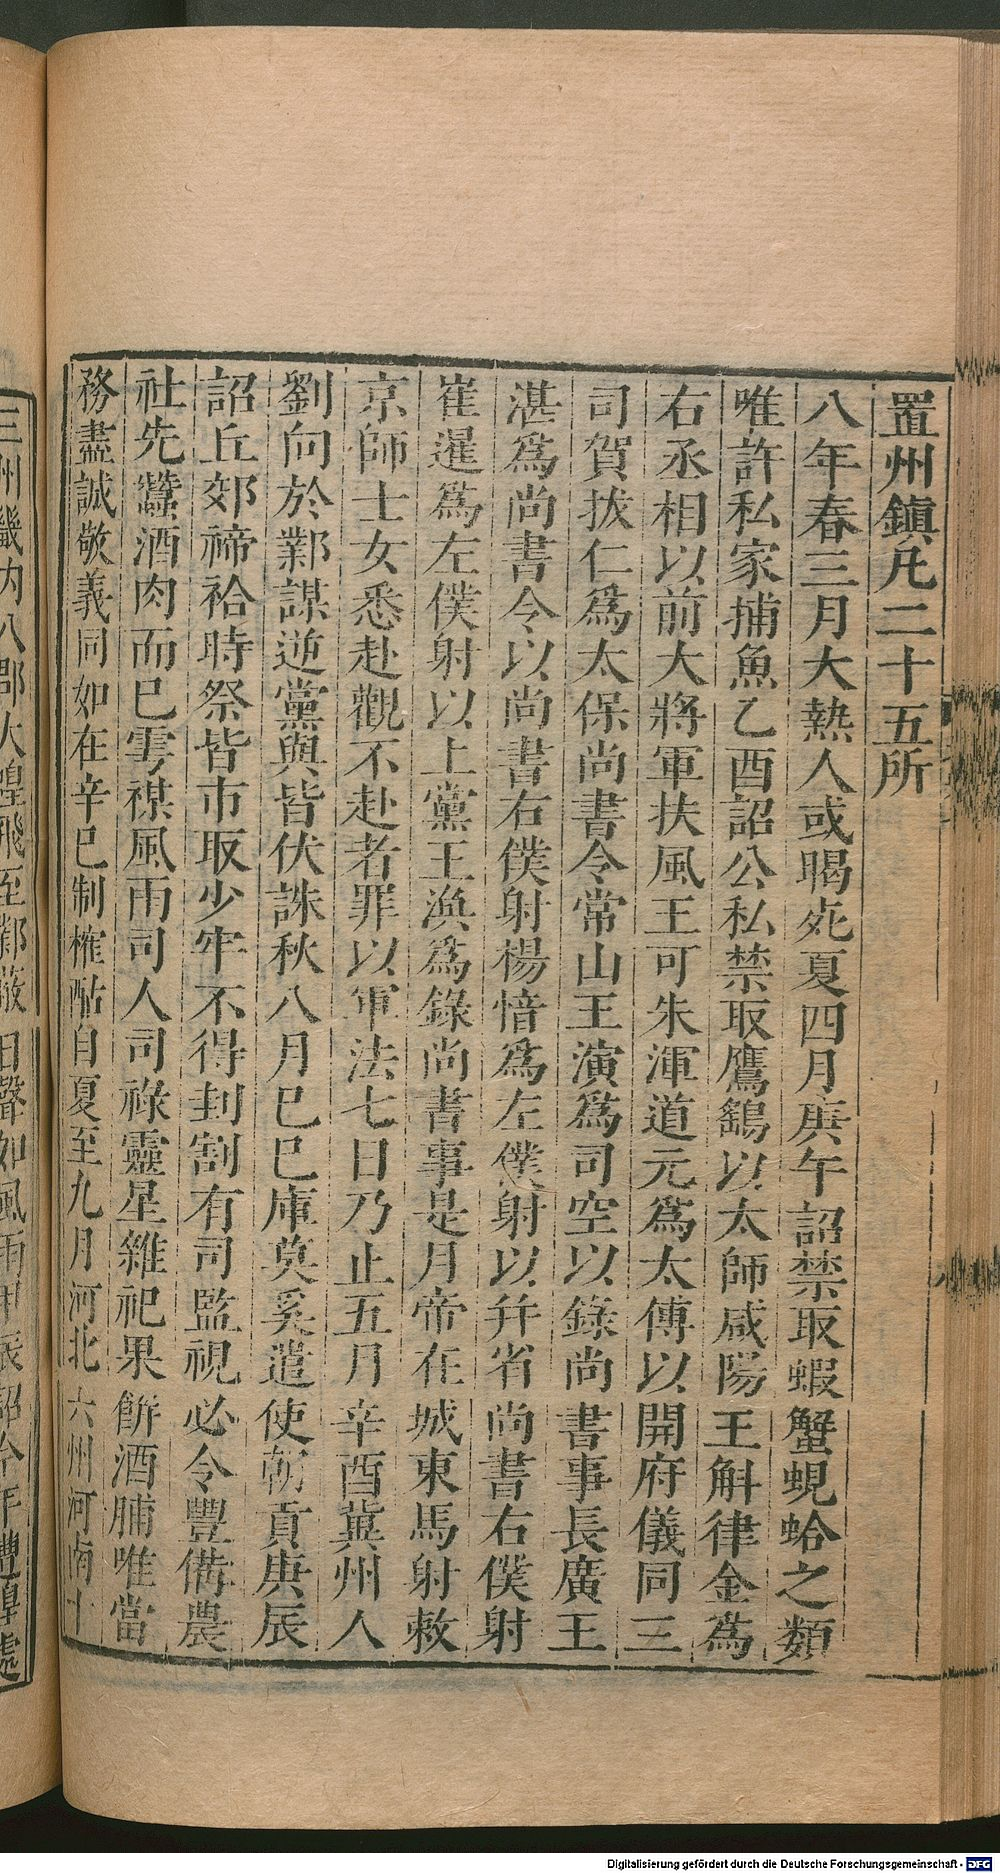 置州鎮凡二十五所
八年春三月大熱人或暍死夏四月庚午詔禁取蝦蟹蜆蛤之類
唯許私家捕魚乙酉詔公私禁取鷹鷂以太師咸陽王斛律金爲
右丞相以前大將軍扶風王可朱渾道元爲太傅以開府儀同三
司賀拔仁爲太保尚書令常山王演爲司空以錄尚書事長廣王
湛爲尚書令以尚書右僕射楊愔爲左僕射以幷省尚書右僕射
崔暹爲左僕射以上黨王渙爲錄尚書事是月帝在城東馬射敕
京師士女悉赴觀不赴者罪以軍法七日乃止五月辛酉冀州人
劉向於鄴謀逆黨與皆伏誅秋八月己巳庫莫奚遣使朝貢庚辰
詔丘郊禘祫時祭皆市取少牢不得刲割有司監視必令豐備農
社先蠶酒肉而已雩禖風雨司人司祿靈星雜祀果餅酒脯唯當
務盡誠敬義同如在辛巳制榷酤自夏至九月河北六州河南十
三州畿内八郡大蝗飛至鄴蔽日聲如風雨甲辰詔今年遭蝗處
Digitalisierung gefördert durch die Deutsche Forschungsgemeinschaft - DFG